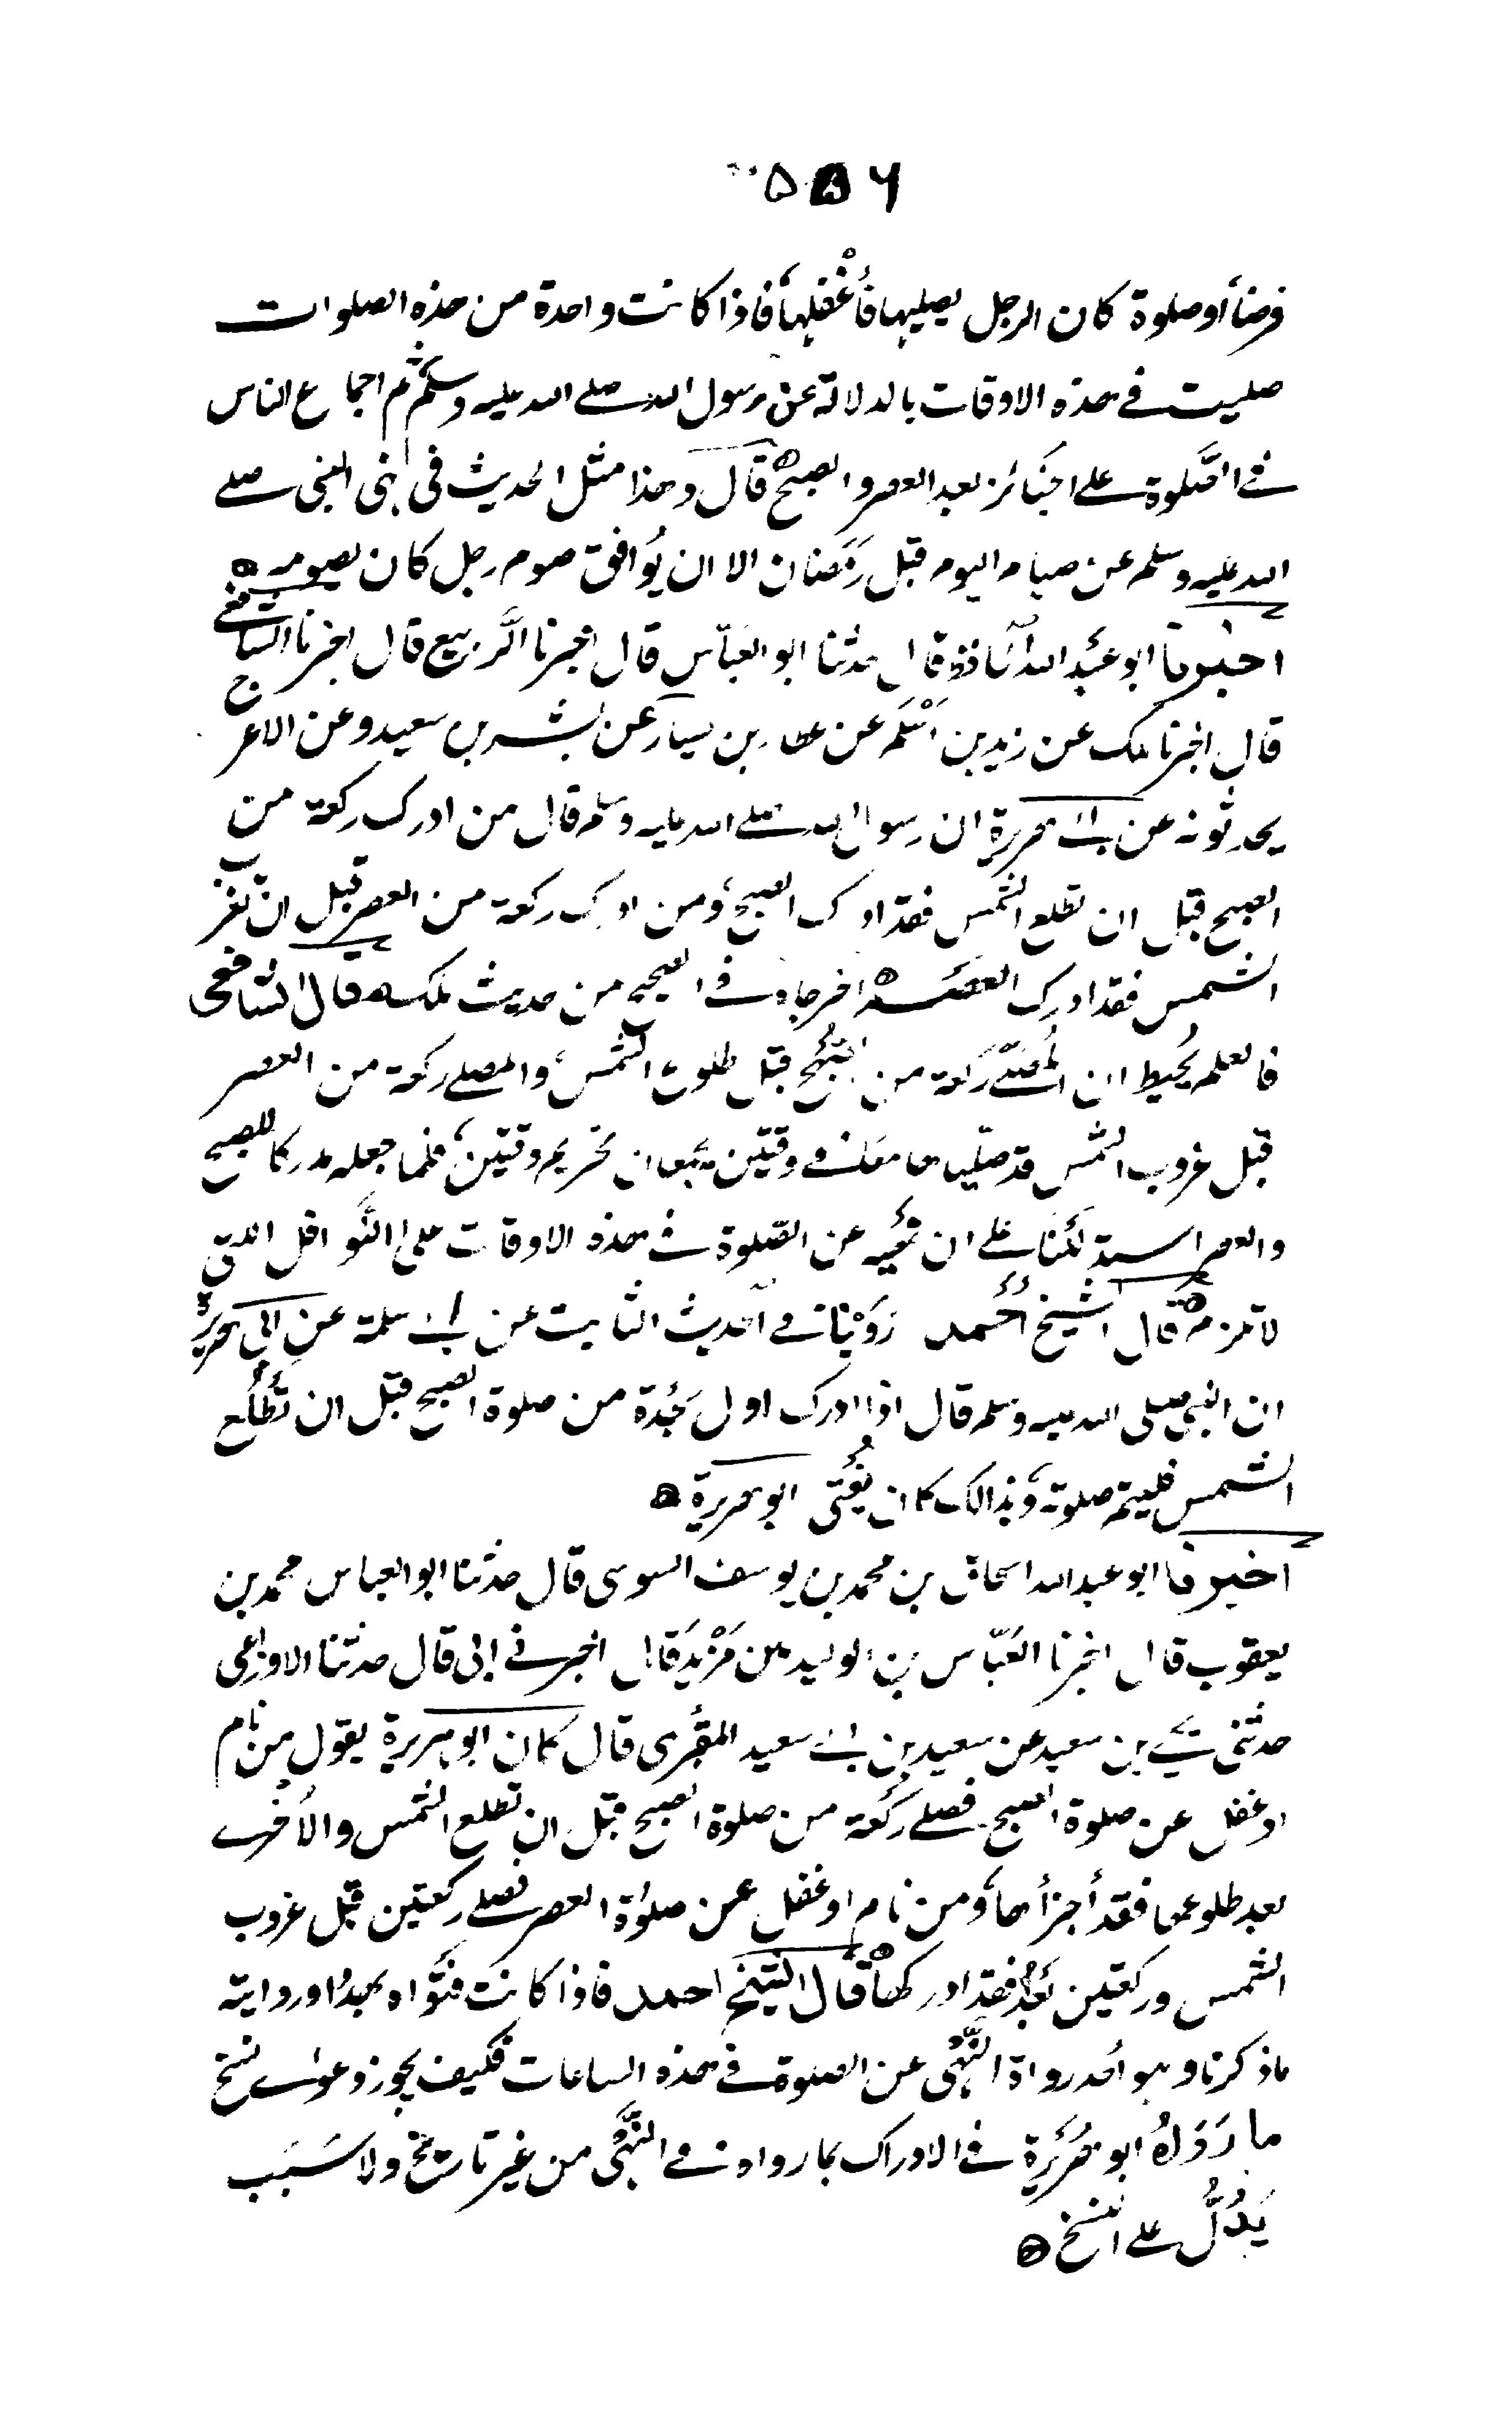 ۵۵۶
فرضا أو صلوة كان الرجل يصليها فأغفلها فاذا كانت واحدة من هذه الصلوات
صليت في هذه الاوقات بالدلالة عن رسول الله صلى الله عليه وسلم ثم اجماع الناس
في الصلوة على الجنائز بعد العصر والصبح قال وهذا مثل الحديث في نهي النبي صلى
الله عليه وسلم عن صيام اليوم قبل رمضان الا ان يوافق صوم رجل كان يصومه
اخبرنا ابو عبد الله الحافظ قال حدثنا ابو العباس قال اخبرنا الربيع قال اخبرنا الشافعي
قال اخبرنا ملك عن زيد بن اسلم عن عطاء بن يسار عن بسر بن سعيد وعن الاعرج
يحدثونه عن ابي هريرة ان رسول الله صلى الله عليه وسلم قال من ادرك ركعة من
الصبح قبل ان تطلع الشمس فقد ادرك الصبح ومن ادرك ركعة من العصر قبل ان تغرب
الشمس فقد ادرك العصر اخرجاه في الصحيح من حديث ملك قال الشافعي
فالعلم يحيط ان المصلي ركعة من الصبح قبل طلوع الشمس والمصلي ركعة من العصر
قبل غروب الشمس قد صليا معا في وقتين يجمعان تحريم وقتين فلما جعله مدركا للصبح
والعصر استدللنا على ان نهيه عن الصلوة في هذه الاوقات على النوافل التي
لا تلزم قال الشيخ أحمد روينا في الحديث الثابت عن ابي سلمة عن ابي هريرة
ان النبي صلى الله عليه وسلم قال اذا ادرك اول سجدة من صلوة الصبح قبل ان تطلع
الشمس فليتم صلوته وبذالك كان يفتي ابو هريرة
اخبرنا ابو عبد الله اسحاق بن محمد بن يوسف السوسي قال حدثنا ابو العباس محمد بن
يعقوب قال اخبرنا العباس بن الوليد بن مزيد قال اخبرني ابي قال حدثنا الاوزاعي
حدثني يحيى بن سعيد عن سعيد بن ابي سعيد المقبري قال كان ابو هريرة يقول من نام
او غفل عن صلوة الصبح فصلى ركعة من صلوة الصبح قبل ان تطلع الشمس والأخرى
بعد طلوعها فقد أجزأها ومن نام او غفل عن صلوة العصر فصلى ركعتين قبل غروب
الشمس وركعتين بعد فقد ادركها قال الشيخ احمد فاذا كانت فتواه بهذا ورواية
ما ذكرنا وهو أحد رواة النهي عن الصلوة في هذه الساعات فكيف يجوز دعوى نسخ
ما رواه ابو هريرة في الادراك بما رواه في النهي من غير تاريخ ولا سبب
يدل على النسخ